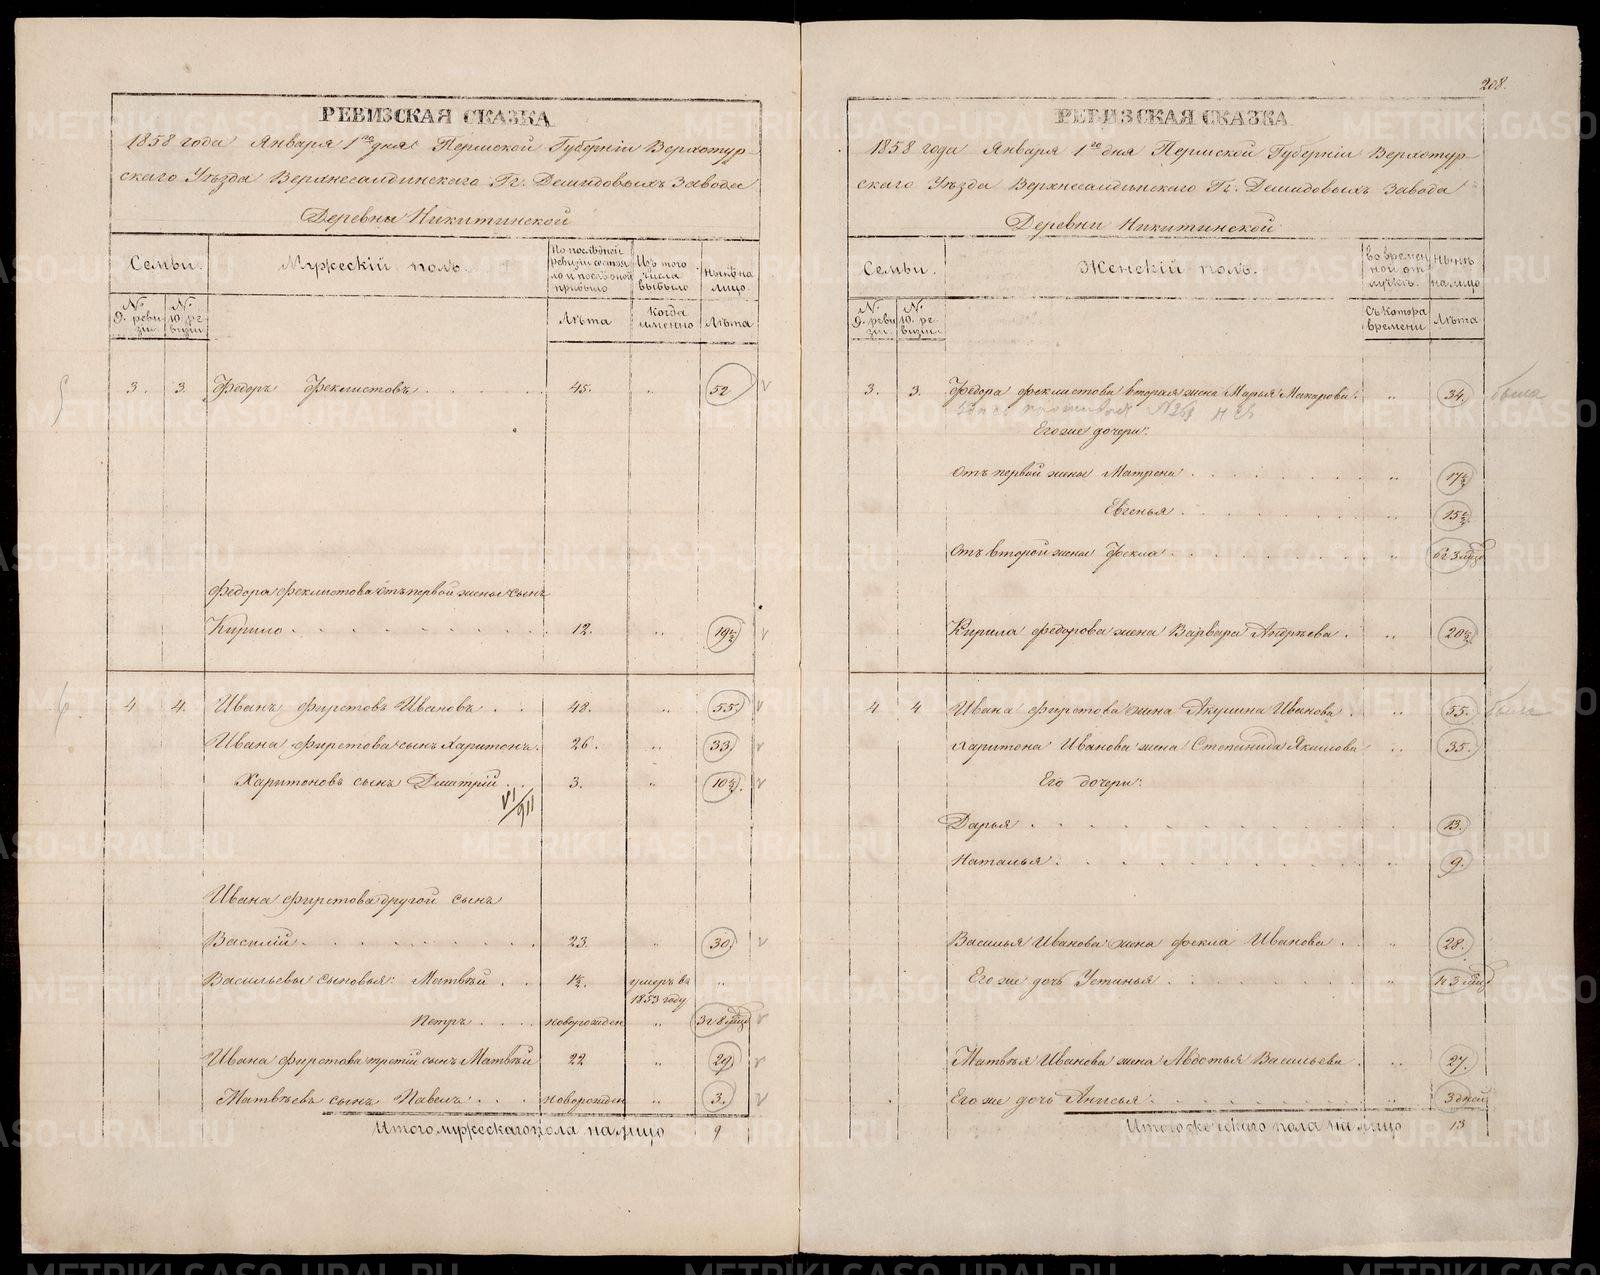 РЕВИЗСКАЯ СКАЗКА
1858 года Января 1го дня Пермской Губерніи Верхотур-
скаго Уѣзда Верхнесалдинскаго Гг. Демидовыхъ Завода
Деревни Никитинской
Семьи.
Мужескій полъ.
По послѣдней ревизіи состояло и послѣ оной прибыло
Изъ того числа выбыло
Нынѣ на лицо.
№ 9. ревизіи.
№ 10. ревизіи
Лѣта
Когда именно
Лѣта
3. 3. Федоръ Феклистовъ . . . . . 45. „ 52
Федора Феклистова отъ первой жены сынъ
Кирило . . . . . . . . 12. „ 19½
4 4. Иванъ Фирстовъ Ивановъ . . 48. „ 55.
Ивана Фирстова сынъ Харитонъ. 26. „ 33
Харитоновъ сынъ Дмитрій . . 3. „ 10½.
VI/911
Ивана Фирстова другой сынъ
Василій . . . . . . . . 23. „ 30.
Васильевы сыновья: Матвѣй . . ½. умеръ въ 1853 году „
Петръ . . . . новорожден „ 3г 8 мцв
Ивана Фирстова третій сынъ Матвѣй 22 „ 29.
Матвѣевъ сынъ Павелъ . . . новорожден „ 3.
Итого мужескаго пола на лицо 9
208.
РЕВИЗСКАЯ СКАЗКА
1858 года Января 1го дня Пермской Губерніи Верхотур-
скаго Уѣзда Верхнесалдинскаго Гг. Демидовыхъ Завода
Деревни Никитинской
Семьи.
Женскій полъ.
Во временной отлучкѣ.
Нынѣ на лицо
№ 9. ревизіи.
№ 10. ревизіи.
Съ котора времени
Лѣта
3. 3. Федора Феклистова вторая жена Марья Макарова. „ 34.
Его же дочери:
Отъ первой жены Матрена . . . . . . „ 17½
Евгенья . . . . . . „ 15½.
Отъ второй жены Фекла . . . . . . . „ 6г 3 мцв
Кирила Федорова жена Варвара Андреева . „ 20½
4 4 Ивана Фирстова жена Акулина Иванова . „ 55.
Харитона Иванова жена Степанида Якимова „ 35.
Его дочери:
Дарья . . . . . . . . . . 13.
Наталья . . . . . . . . . 9.
Василья Иванова жена Фекла Иванова . „ 28.
Его же дочь Устинья . . . . . . . „
Матвѣя Иванова жена Авдотья Васильева . „ 27.
Его же дочь Анисья . . . . . . . „ 3 дней
Итого женскаго пола на лицо 13
METRIKI.GASO-URAL.RU